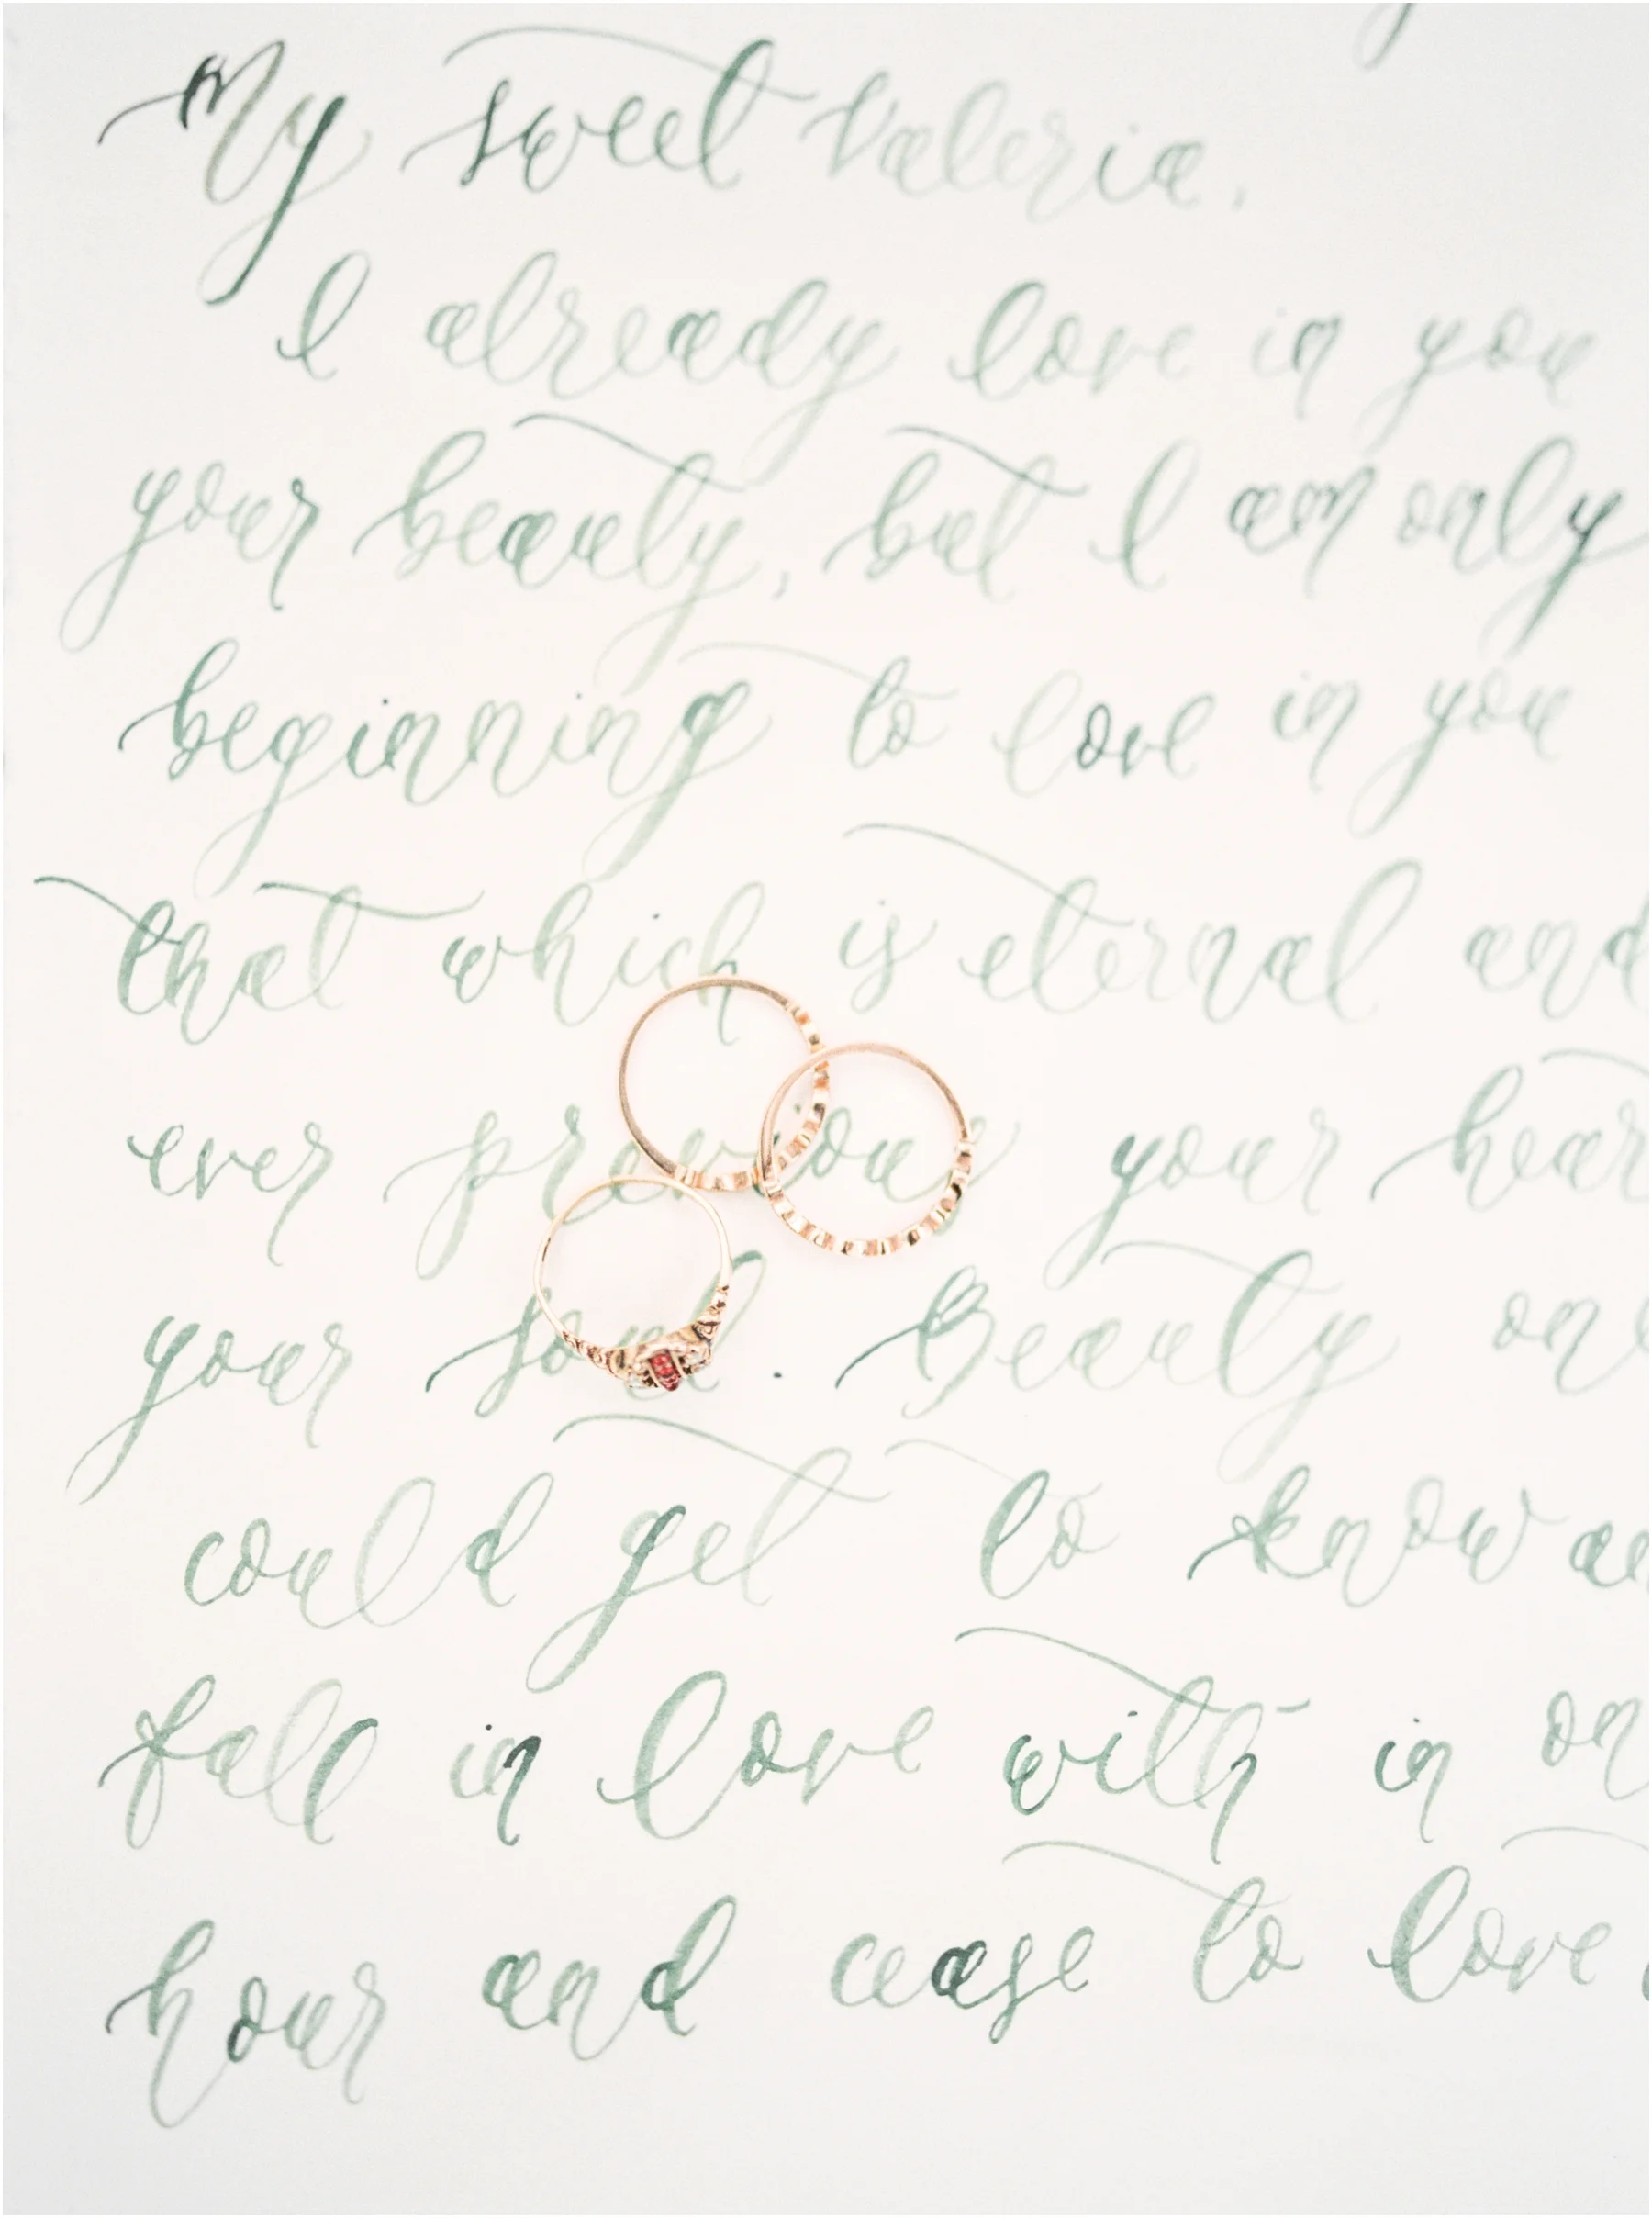 My sweet Valeria,
I already love in you
your beauty, but I am only
beginning to love in you
that which is eternal and
ever precious your hear
your soul. Beauty one
could get to know an
fall in love with in on
hour and cease to love